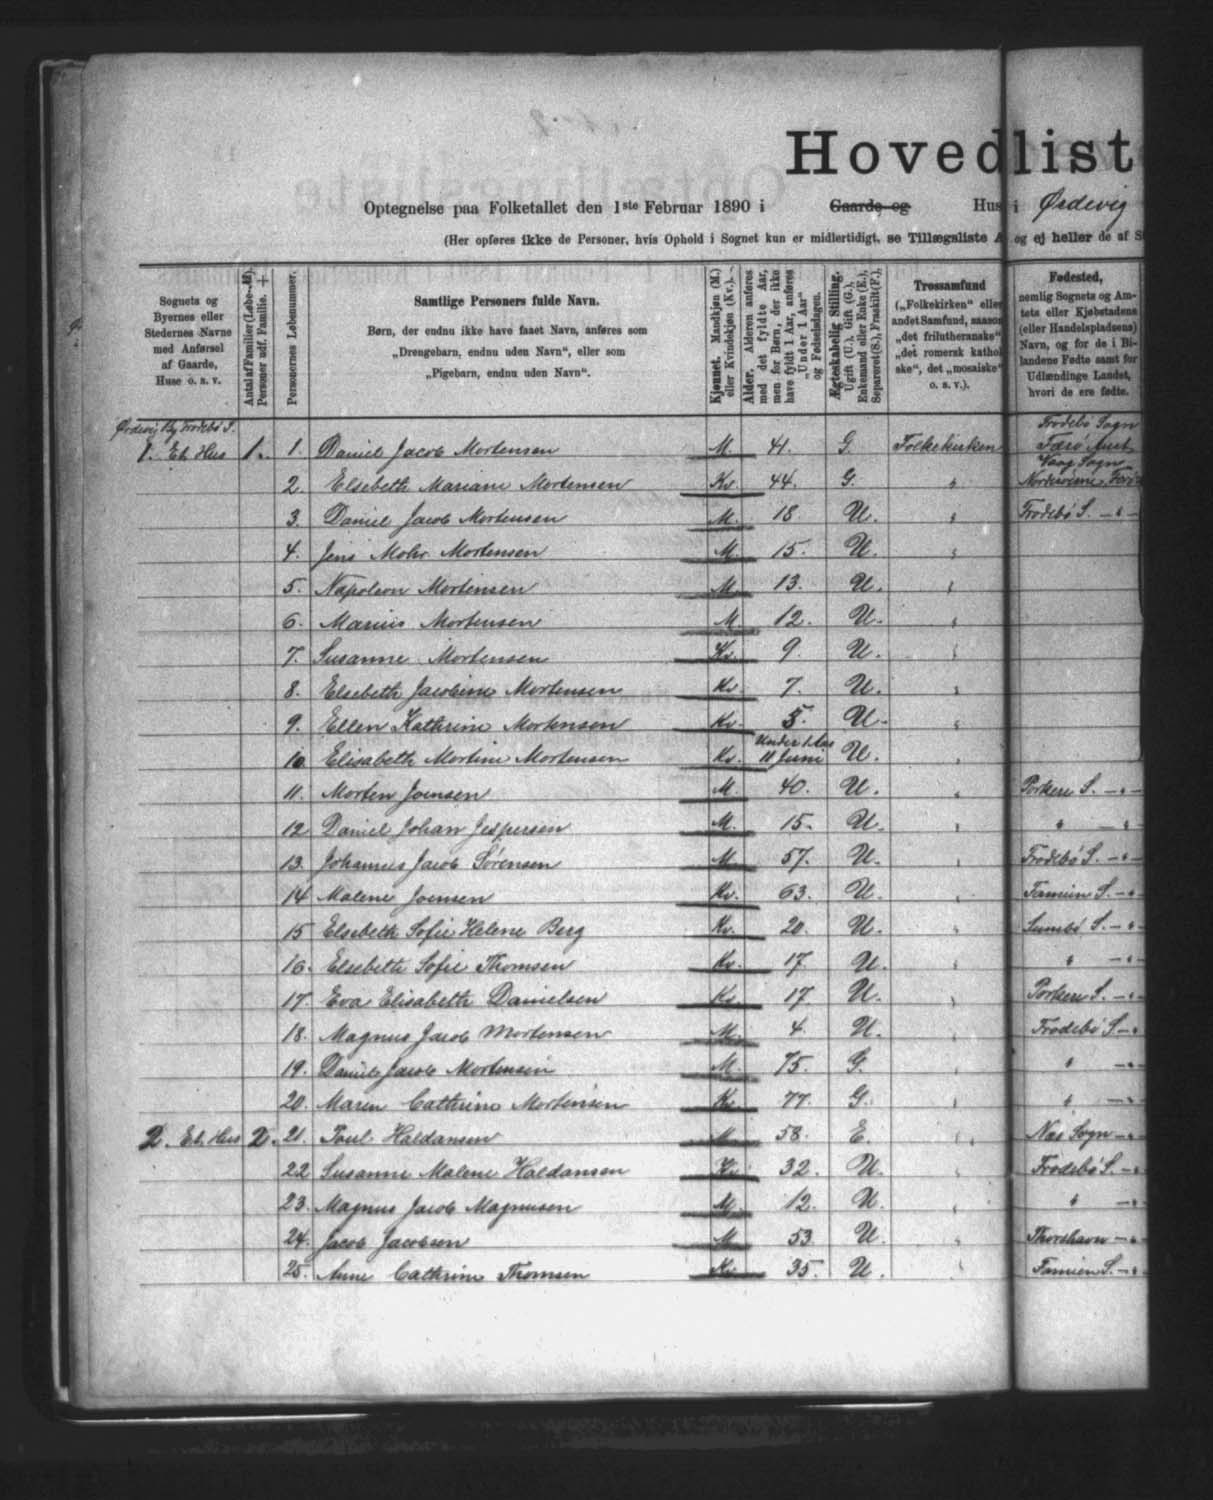 Hovedlist
Optegnelse paa Folketallet den 1ste Februar 1890 i Gaarde og Hus i Ørdevig
(Her opføres ikke de Personer, hvis Ophold i Sognet kun er midlertidigt, se Tillægsliste A og ej heller de af S
Sognets og Byernes eller Stedernes Navne med Anførsel af Gaarde, Huse o. s. v.
Antal af Familier (Løbe-№). Personer udf. Familie. +
Personernes Løbenummer.
Samtlige Personers fulde Navn.
Børn, der endnu ikke have faaet Navn, anføres som „Drengebarn, endnu uden Navn“, eller som „Pigebarn, endnu uden Navn“.
Kjønnet. Mandkjøn (M.) eller Kvindekjøn (Kv.).
Alder. Alderen anføres med det fyldte Aar, men for Børn, der ikke have fyldt 1 Aar, anføres „Under 1 Aar“ og Fødselsdagen.
Ægteskabelig Stilling. Ugift (U.), Gift (G.), Enkemand eller Enke (E.), Separeret (S.), Fraskilt (F.),
Trossamfund („Folkekirken“ eller andet Samfund, saasom „det frilutheranske“ „det romersk kathol ske“, det „mosaiske“ o. s. v.).
Fødested, nemlig Sognets og Amtets eller Kjøbstadens (eller Handelspladsens) Navn, og for de i Bilandene Fødte samt for Udlændinge Landet, hvori de ere fødte.
Ørdevig By Frodebø S.
1. Et Hus 1. 1. Daniel Jacob Mortensen M. 41. G. Folkekirken Frodebø Sogn Færø Amt
2. Elsebeth Mariane Mortensen Kv. 44. G. " Vaag Sogn Norderøerne Færø
3. Daniel Jacob Mortensen M. 18 U. " Frodebø S. — " —
4. Jens Mohr Mortensen M. 15. U. "
5. Napoleon Mortensen M. 13. U. "
6. Marius Mortensen M. 12. U. "
7. Susanne Mortensen Kv. 9. U. "
8. Elsebeth Jacobine Mortensen Kv. 7. U. "
9. Ellen Kathrine Mortensen Kv. 5. U. "
10 Elisabeth Mortine Mortensen Kv. Under 1 Aar 11 Juni U. "
11. Morten Joensen M. 40. U. " Porkere S. — " —
12 Daniel Johan Jespersen M. 15. U. " " — "
13. Johannes Jacob Sørensen M. 57. U. " Frodebø S. — " —
14 Malene Joensen Kv. 63. U. " Famien S. — "
15 Elsebeth Sofie Helene Berg Kv. 20. U. " Sumbø S. — "
16. Elsebeth Sofie Thomsen Kv. 17 U. " " — "
17. Eva Elisabeth Danielsen Kv. 17 U. " Porkere S. — "
18. Magnus Jacob Mortensen M. 4. U. " Frodebø S — "
19. Daniel Jacob Mortensen M. 75. G. " " — "
20. Maren Cathrine Mortensen Kv. 77. G. " " — "
2. Et Hus 2. 21. Poul Haldansen M. 58. E. " Nas Sogn — "
22 Susanne Malene Haldansen Kv. 32. U. " Frodebø S. — "
23. Magnus Jacob Magnusen M. 12. U. " " — "
24. Jacob Jacobsen M. 53 U. " Thorshavn — "
25. Anne Cathrine Thomsen Kv. 35. U. " Famien S. — "